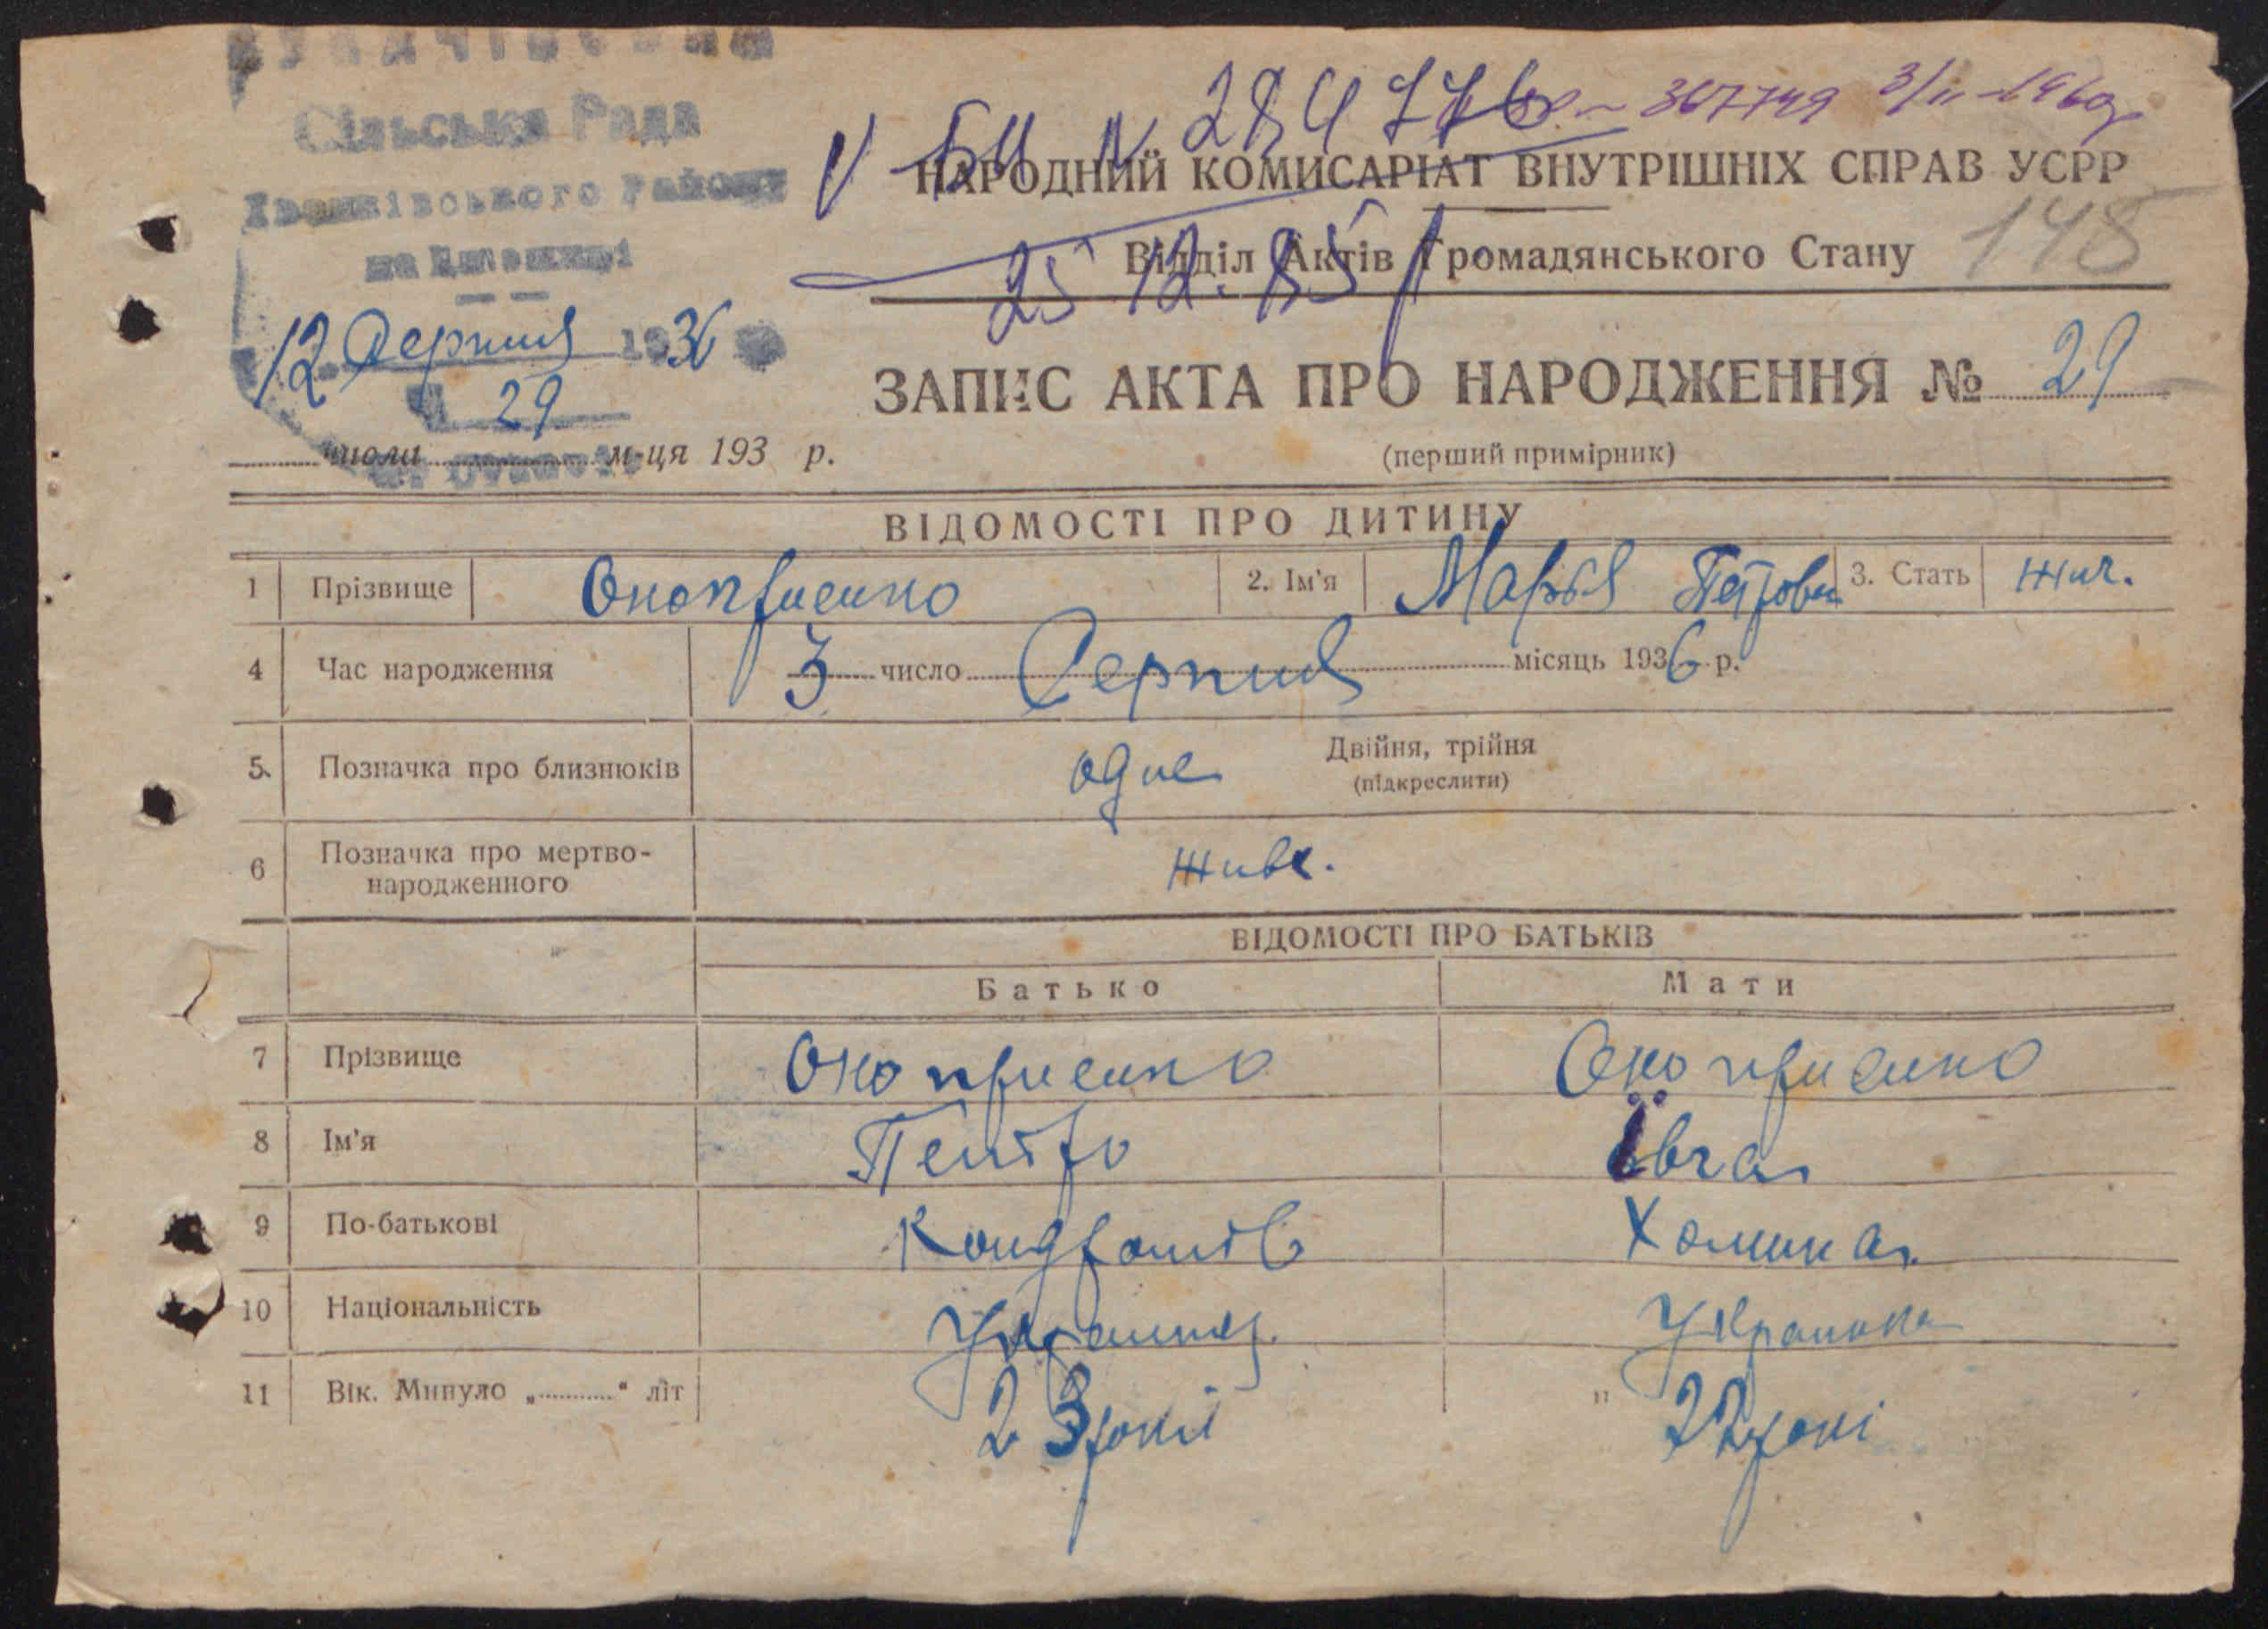 Сільська Рада
на Київщині
12 Серпня 1936
29
числа м-ця 193 р.
№ 284776 367749 3/II-196
НАРОДНИЙ КОМИСАРІАТ ВНУТРІШНІХ СПРАВ УСРР
25 12. 85
Відділ Актів Громадянського Стану
148
ЗАПИС АКТА ПРО НАРОДЖЕННЯ № 29
(перший примірник)
ВІДОМОСТІ ПРО ДИТИНУ
1 Прізвище Оноприенко 2. Ім'я Марья Петровн 3. Стать жін.
4 Час народження 3 число Серпня місяць 1936 р.
5. Позначка про близнюків одне Двійня, трійня
(підкреслити)
6 Позначка про мертво-
народженного живе.
ВІДОМОСТІ ПРО БАТЬКІВ
Батько Мати
7 Прізвище Оноприенко Оноприенко
8 Ім'я Петро Івга
9 По-батькові Кондратів Хомина
10 Національність Українец. Українка
11 Вік. Минуло „..........“ літ 23 роки " 22 рокі